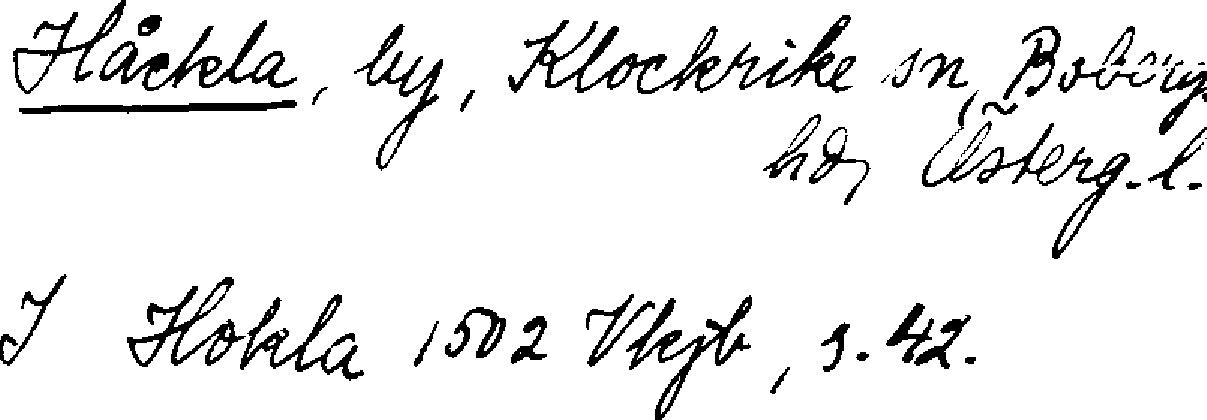 Håckla, by, Klockrike sn, Bobergs
hd, Österg. l.
J Hokla 1502 Vkjb, s. 42.